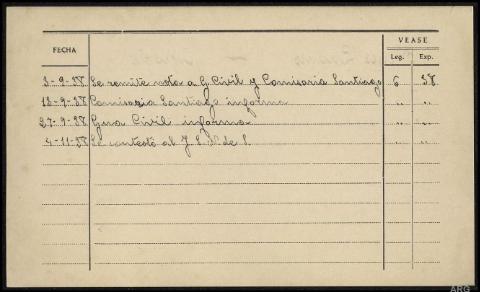 VEASE
FECHA
Leg. Exp.
3-9-38 Se remite nota a G. Civil y Comisaria Santiago 6 38
13-9-38 Comisaria Santiago informa " "
27-9-38 Gna Civil informa " "
4-11-38 Se contestó al J. S. N. de S. " "
ARG